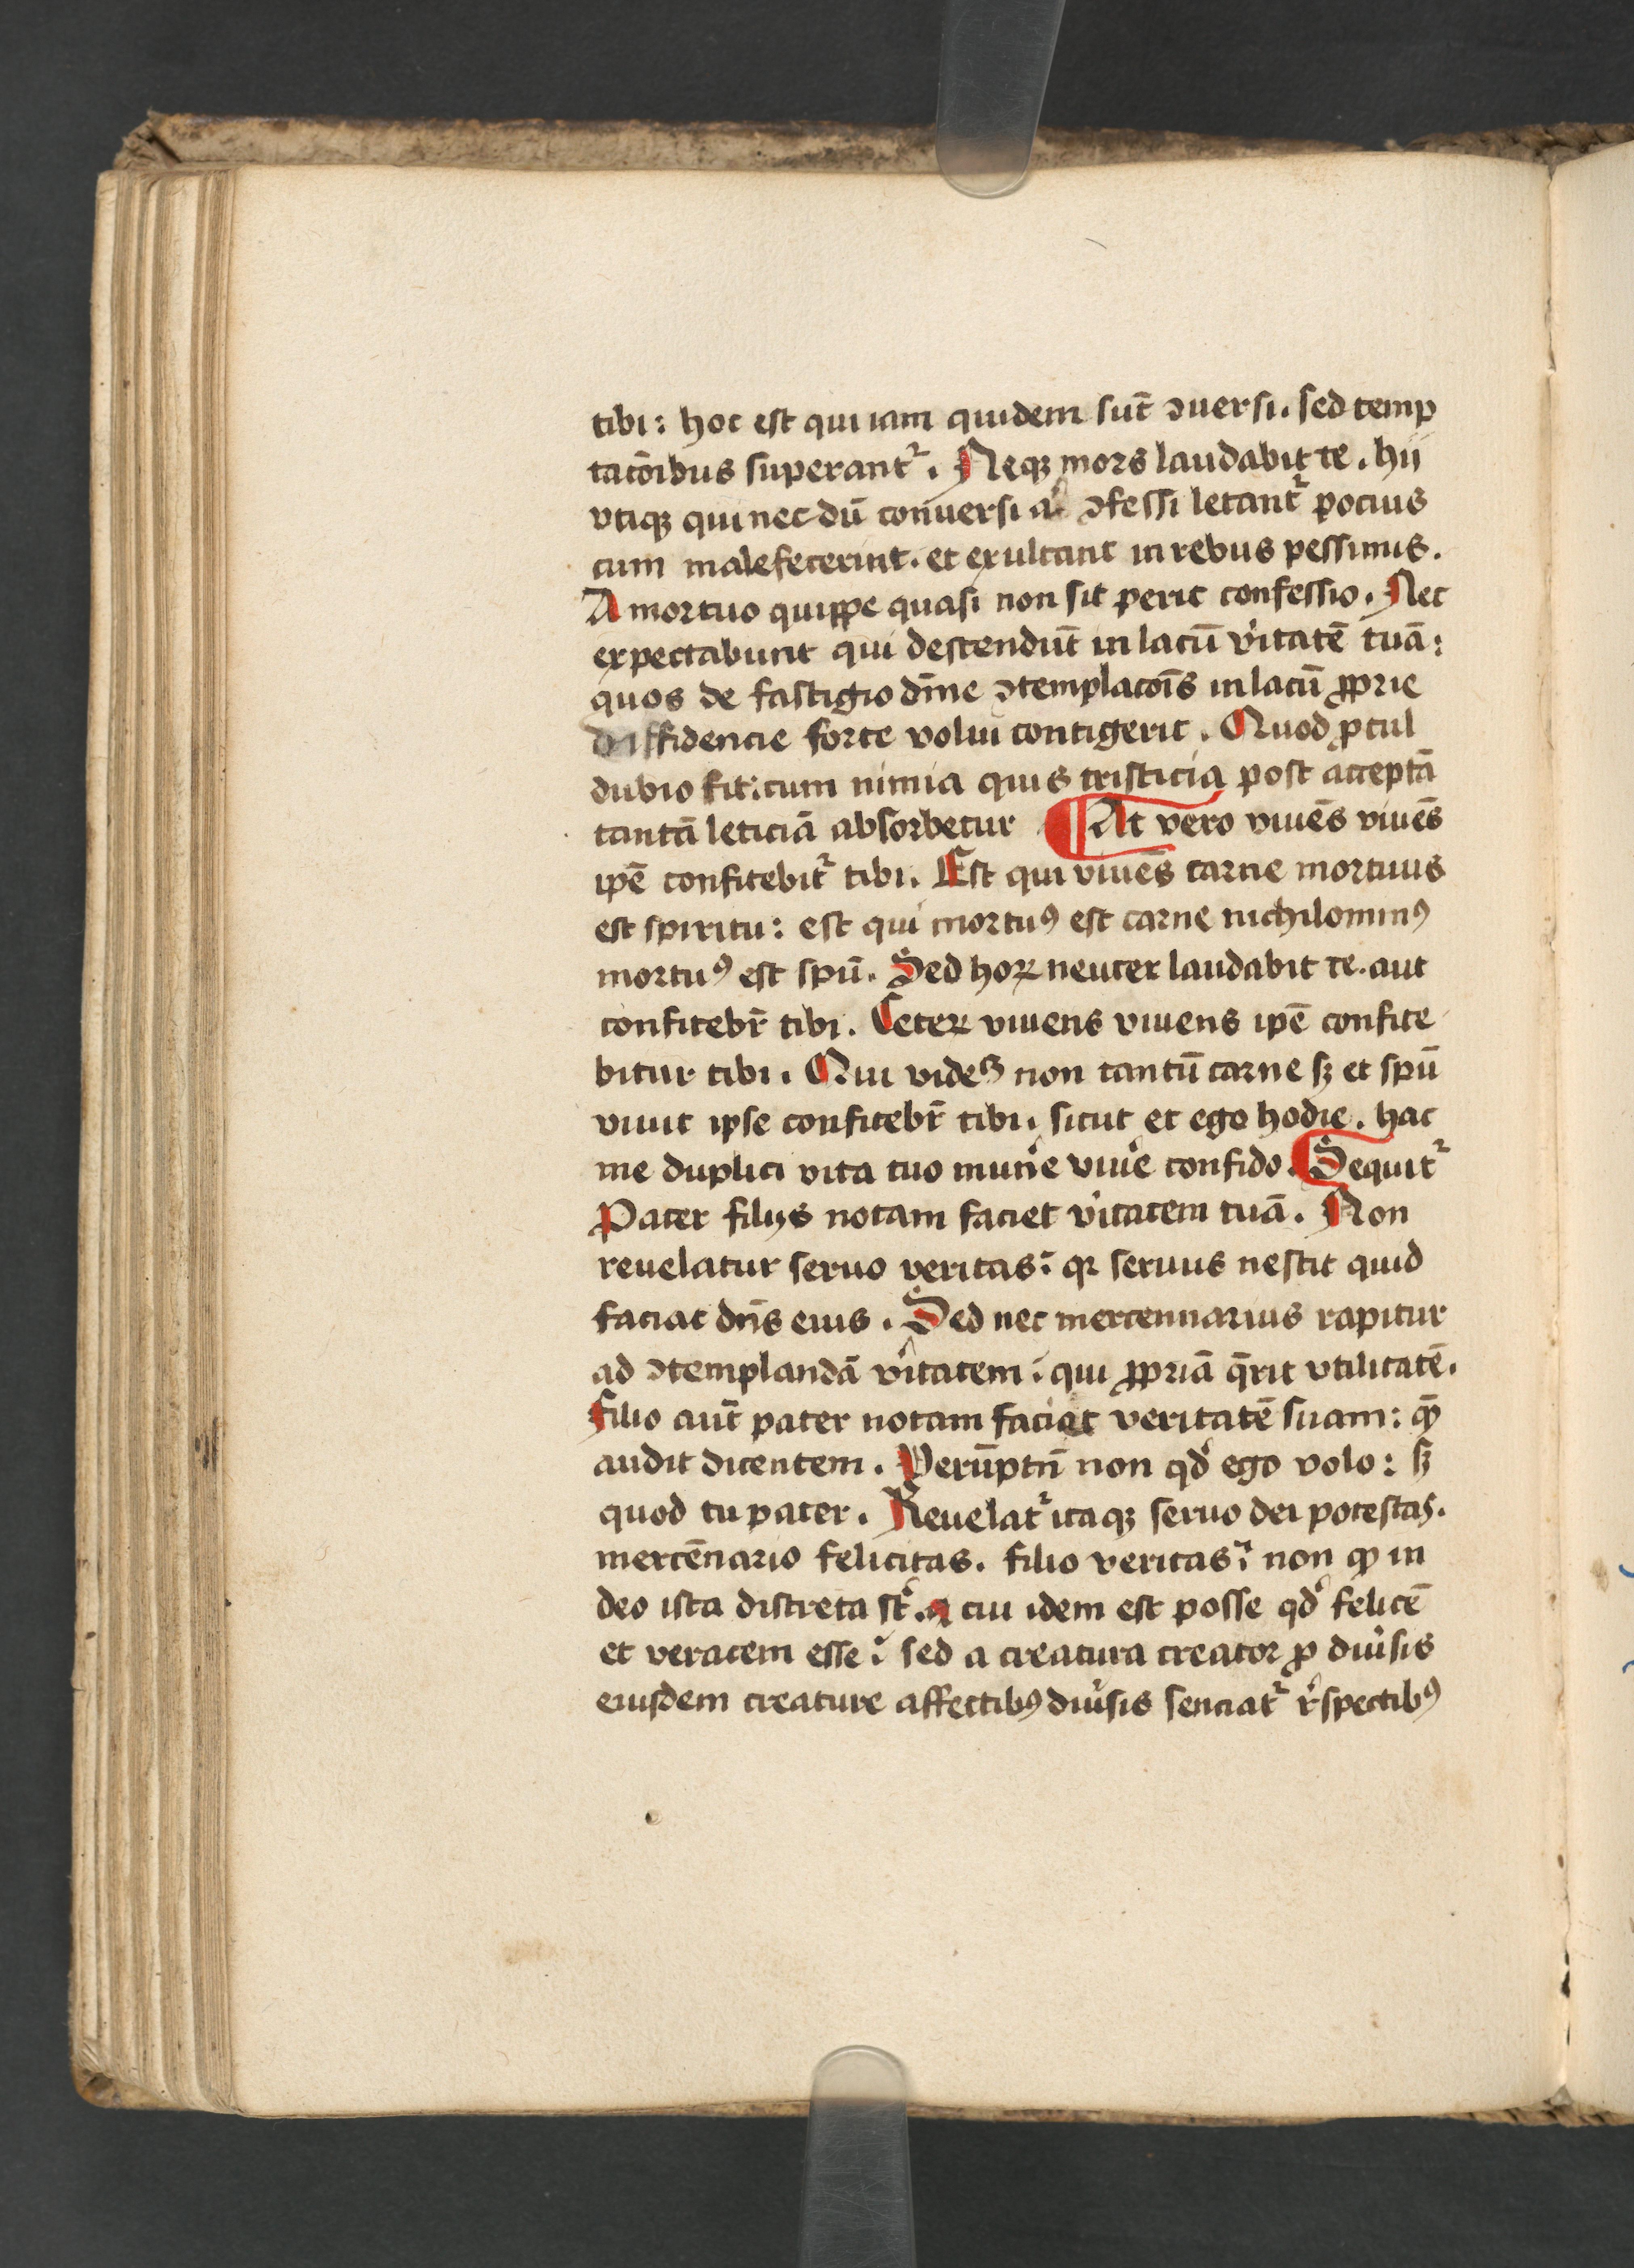 tibi: hoc est qui iam quidem sūt ꝯuersi. sed temp
tacōibus superantʳ. Neqꝫ mors laudabit te. hij
vtiqꝫ qui nec dū conuersi ꝯfessi letantʳ pocius
cum malefecerint. et exultant in rebus pessimis.
A mortuo quippe quasi non sit perit confessio. Nec
expectabunt qui descendūt in lacū v̓itatē tuā:
quos de fastigio dīne ꝯtemplacōis in lacū ꝓprie
diffidencie forte volui contigerit. Quod ꝓcul
dubio fit: cum nimia quis tristicia post acceptā
tantā leticiā absorbetur ¶ At vero viuēs viuēs
ip̄e confitebitʳ tibi. Est qui viuēs carne mortuus
est spiritu: est qui mortuꝰ est carne nichilominꝰ
mortuꝰ est sp̄u. Sed hoꝝ neuter laudabit te. aut
confitebr̄ tibi. Ceteꝝ viuens viuens ip̄e confite
bitur tibi. Qui videꝫ non tantū carne sꝫ et sp̄u
viuit ipse confitebr̄ tibi. sicut et ego hodie. hac
me duplici vita tuo mun̓e viu̓e confido. ¶ Sequitʳ
Pater filijs notam faciet v̓itatem tuā. Non
reuelatur seruo veritas: qꝛ seruus nescit quid
faciat dn̄s eius. Sed nec mercennarius rapitur
ad ꝯtemplandā v̓itatem: qui ꝓpriā q̄rit vtilitatē.
Filio aūt pater notam faciet veritatē suam: qꝫ
audit dicentem. Verūptn̄ non qd̓ ego volo: sꝫ
quod tu pater. Reuelatʳ itaqꝫ seruo dei potestas.
mercēnario felicitas. filio veritas: non ꝙ in
deo ista discreta st̓. cui idem est posse qd̓ felicē
et veracem esse: sed a creatura creator ꝓ diu̓sis
eiusdem creature affectibꝰ diu̓sis senciatʳ r̓spectibꝰ